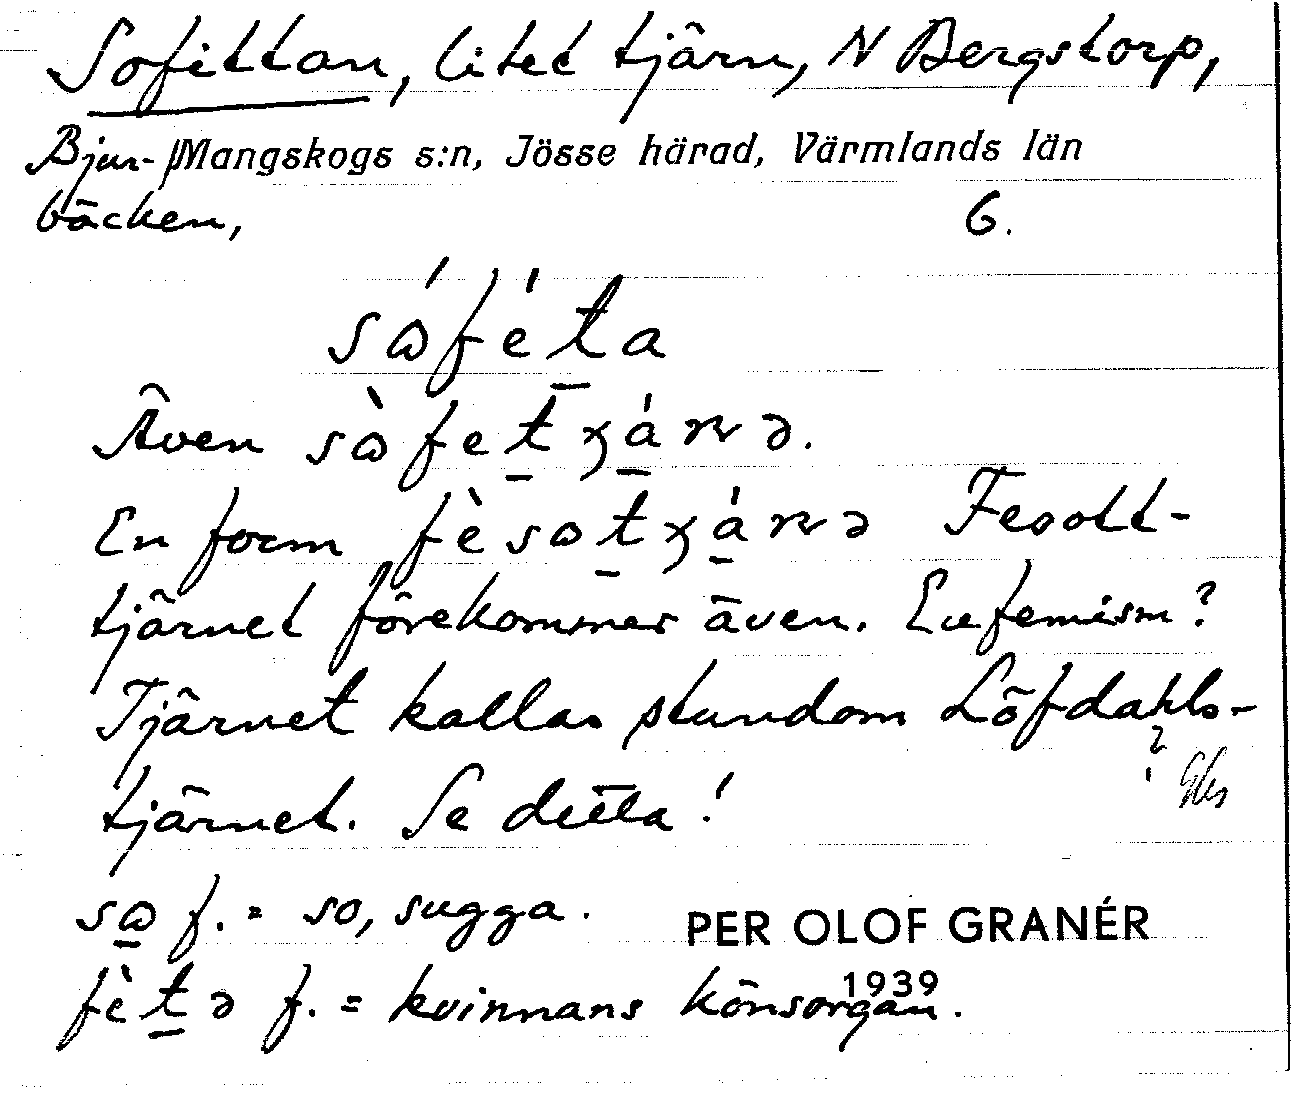 Sofittan, litet tjärn, N Bergstorp,
Bjur- Mangskogs s:n, Jösse härad, Värmlands län
bäcken, 6.
sɷ́féta
Även sɷ̀fetꭓáꞃə.
En form fèsɷtꭓáꞃə Fesott-
tjärnet förekommer även. Eufemism?
Tjärnet kallas stundom Löfdahls-
?
tjärnet. Se detta!
sɷ f. = so, sugga.
PER OLOF GRANÉR
1939
fètə f. = kvinnans könsorgan.